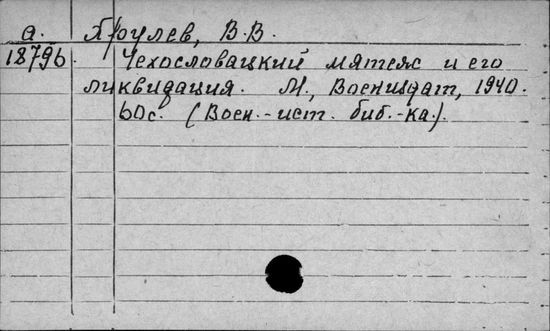 а. Хрулев, В.В.
18796 Чехословацкий мятеж и его
ликвидация. М., Воениздат, 1940.
60с. (Воен.-ист. биб.-ка).